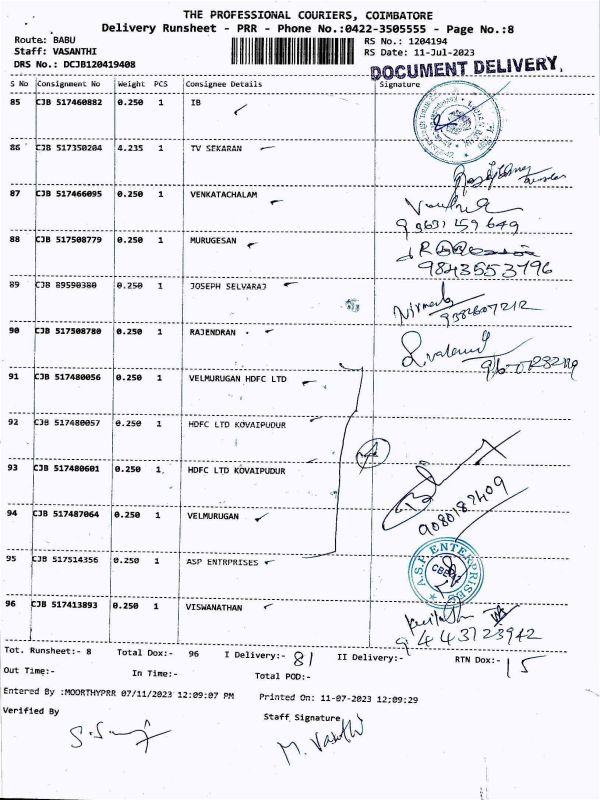 THE PROFESSIONAL COURIERS, COIMBATORE
Delivery Runsheet - PRR - Phone No.:0422-3505555 - Page No.:8
Route: BABU RS No.: 1204194
Staff: VASANTHI RS Date: 11-Jul-2023
DRS No.: DCJB120419408 DOCUMENT DELIVERY.
S No Consignment No Weight PCS Consignee Details Signature
85 CJB 517460882 0.250 1 IB
86 CJB 517350204 4.235 1 TV SEKARAN
87 CJB 517466095 0.250 1 VENKATACHALAM
88 CJB 517508779 0.250 1 MURUGESAN
9843553796
89 CJB 89590380 0.250 1 JOSEPH SELVARAJ
90 CJB 517508780 0.250 1 RAJENDRAN
91 CJB 517480056 0.250 1 VELMURUGAN HDFC LTD
92 CJB 517480057 0.250 1 HDFC LTD KOVAIPUDUR
93 CJB 517480601 0.250 1 HDFC LTD KOVAIPUDUR
94 CJB 517487064 0.250 1 VELMURUGAN
95 CJB 517514356 0.250 1 ASP ENTRPRISES
A.S.P ENTERPRISES
96 CJB 517413893 0.250 1 VISWANATHAN
9443723942
Tot. Runsheet:- 8 Total Dox:- 96 I Delivery:- 81 II Delivery:- RTN Dox:- 15
Out Time:- In Time:- Total POD:-
Entered By :MOORTHYPRR 07/11/2023 12:09:07 PM Printed On: 11-07-2023 12:09:29
Verified By Staff Signature
M. Vasathi